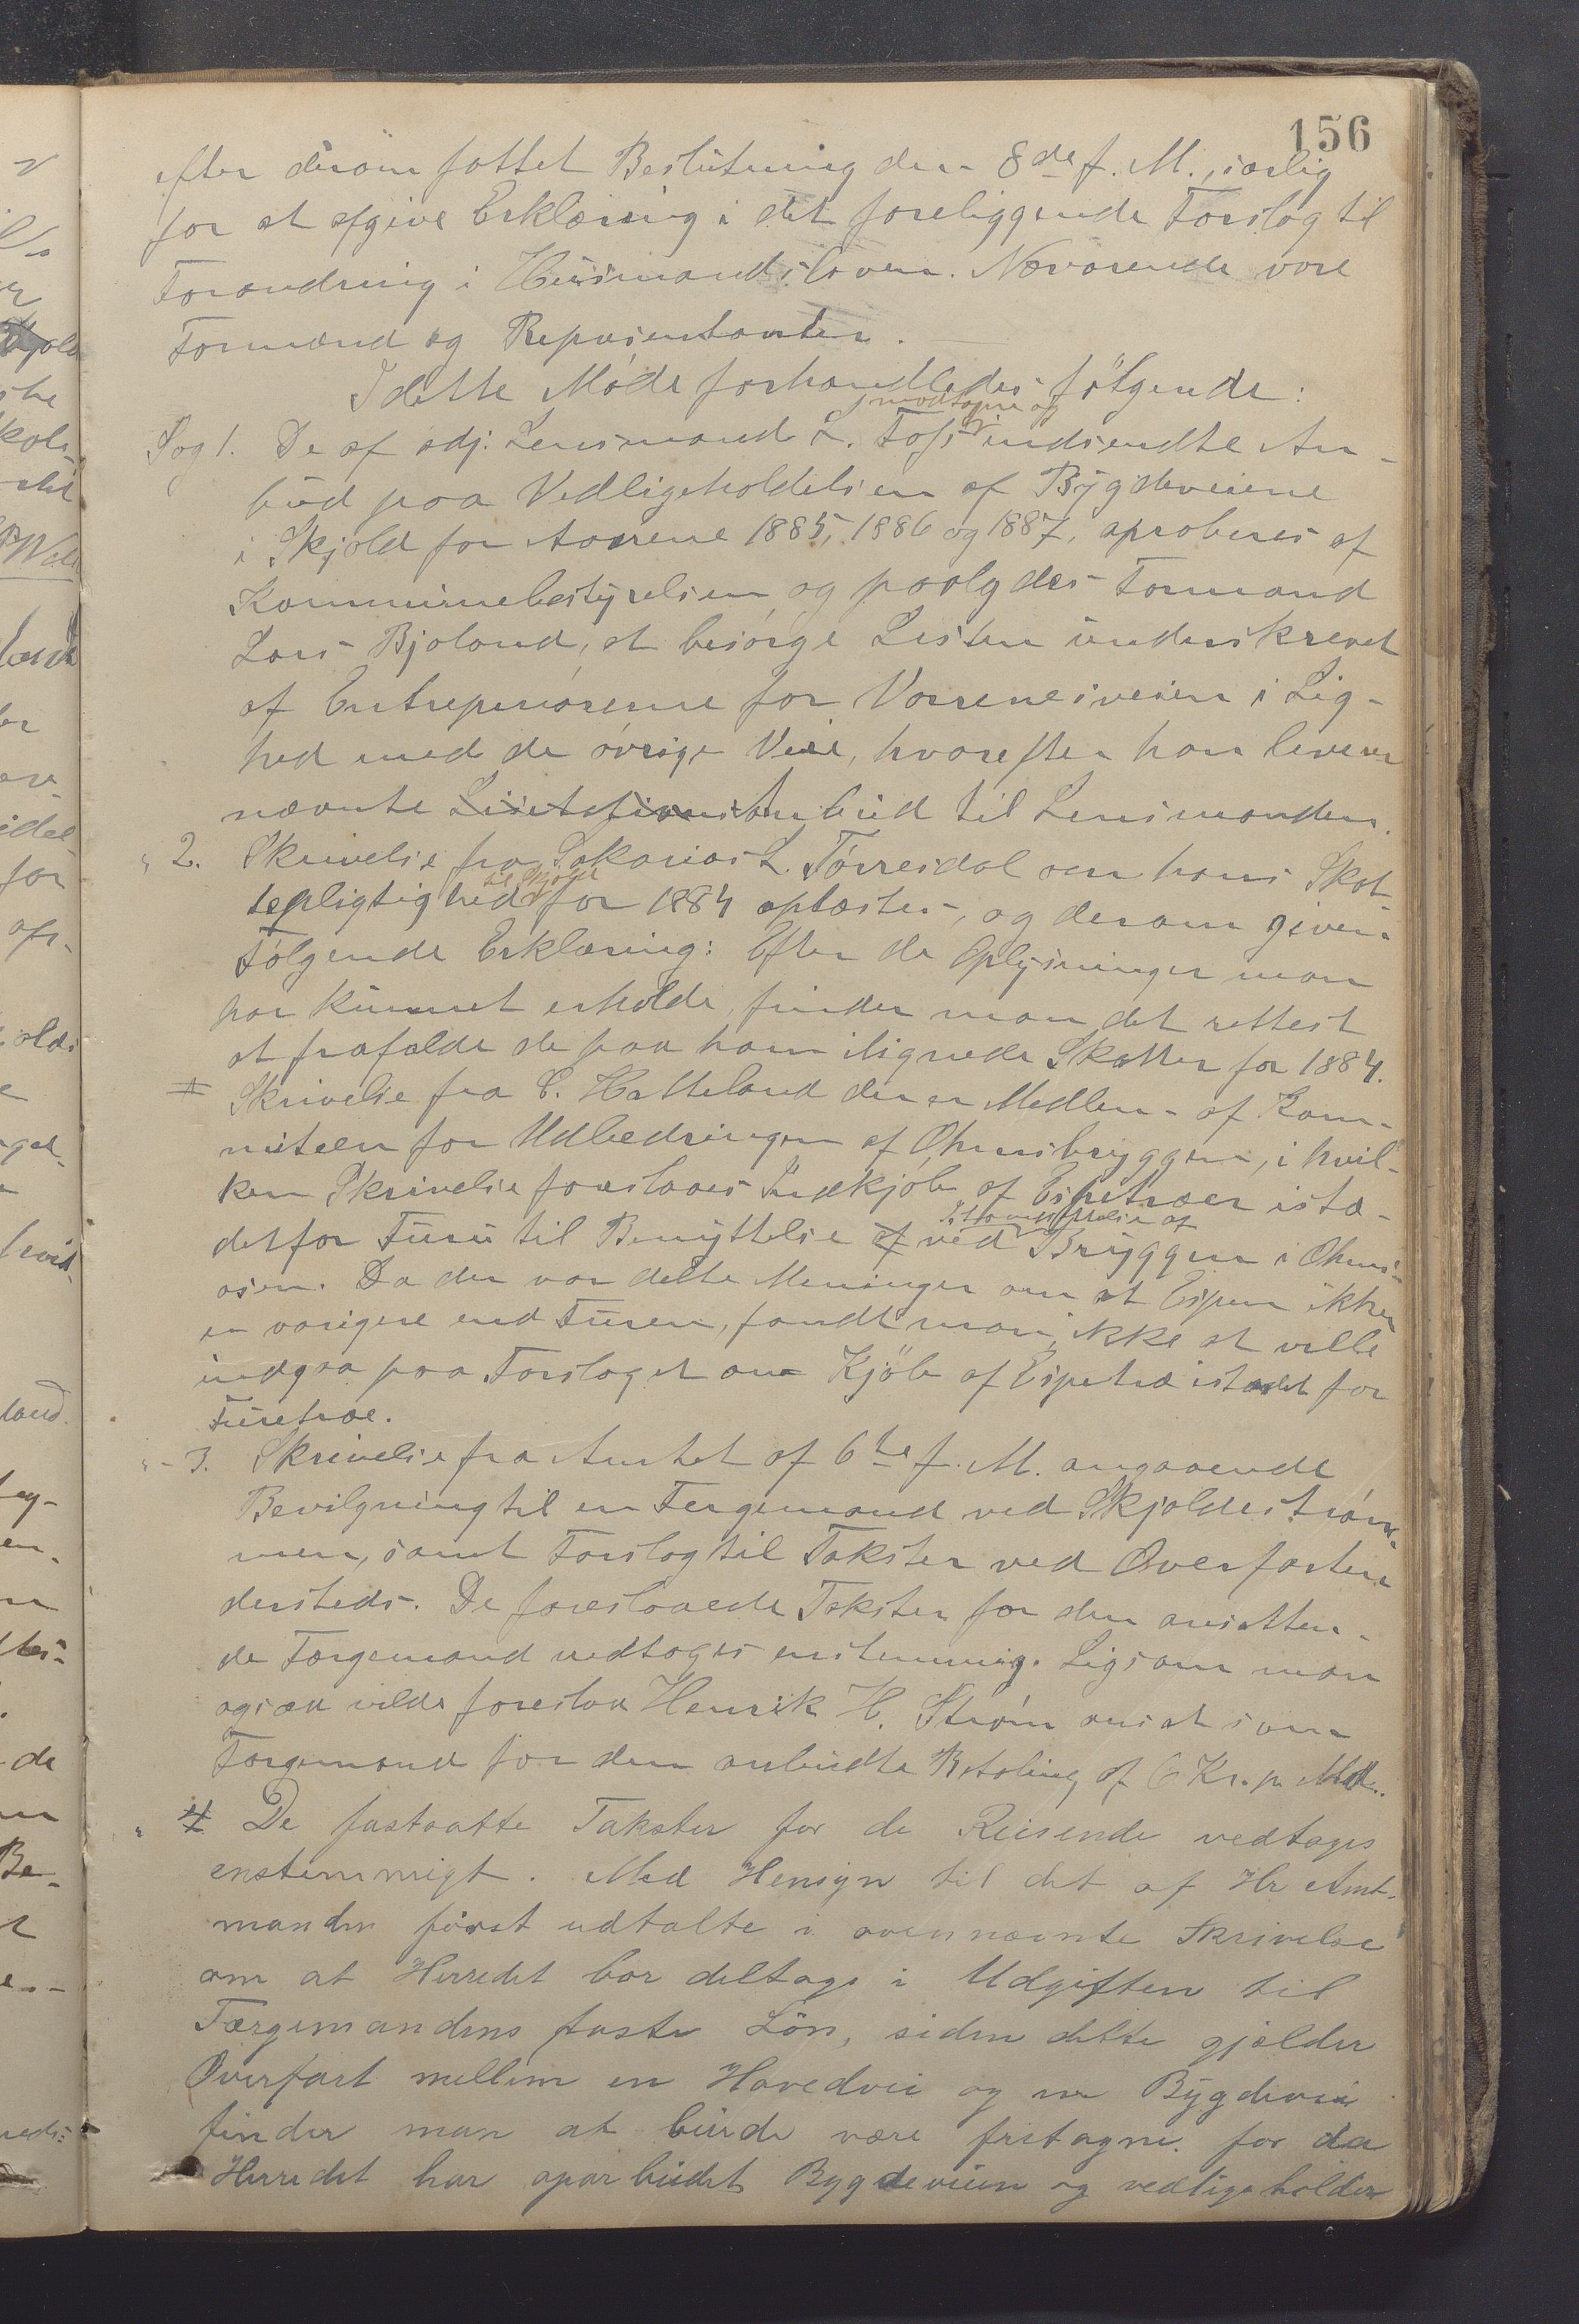 156
efter derom fattet Beslutning den 8de f. M., særlig
for at afgive Erklæring i det foreliggende Forslag til
Forandring i Husmandsloven. Nærværende vare
Formænd og Repræsentanter.
I dette Møde forhandledes følgende:
modtagne og
Sag 1. De af adj. Lensmand L. Foss indsendte An-
bud paa Vedligeholdelsen af Bygdeveiene
i Skjold for Aarene 1885, 1886 og 1887, aproberes af
Kommunebestyrelsen, og paalægdes Formand
Lars Bjoland, at besørge Listen underskrevet
af Entreprenørerne for Vorrenesveien i Lig-
hed med de øvrige Veie, hvorefter han leverer
nævnte Anbud til Lensmanden.
" 2. Skrivelse fra Sakarias L. Tørresdal om hans Skat-
til Skjold
tepligtighed for 1884 oplæstes, og derom gives
Følgende Erklæring: Efter de Oplysninger man
har kunnet erholde, finder man det rettest
at frafalde de paa ham ilignede Skatter for 1884.
Skrivelse fra C. Hatteland der er Medlem af Kom-
miteen for Udbedringen af Ølensbryggen, i hvil-
ken Skrivelse foreslaaes Indkjøb af Espetræer istæ-
Istandsættelse af
det for Furu til Benyttelse ved Bryggen i Ølens-
osen. Da der var delte Meninger om at Espen ikke
er varigere end Furen, fandt man ikke at ville
indgaa paa Forslaget om Kjøb af Espetræ istædet for
Furetræ.
" 3. Skrivelse fra Amtet af 6te f. M. angaaende
Bevilgning til en Fergemand ved Skjoldestrøm-
men, samt Forslag til Takster ved Overfarten
dersteds. De foreslaaede Takster for den ansatten-
de Færgemand vedtoges enstemmig. Ligesom man
ogsaa vilde foreslaa Henrik H. Strøm ansat som
Færgemand for den anbudte Betaling af 6 Kr. pr. Mdr.
" 4 De fastsatte Takster for de Reisende vedtages
enstemmigt. Med Hensyn til det af Hr Amt-
manden først udtalte i ovennævnte Skrivelse
om at Herredet bør deltage i Udgiften til
Færgemandens faste Løn, siden dette gjelder
Overfart mellem en Hovedvei og en Bygdevei
finder man at burde være fritagne for da
Herredet har oparbeidet Bygdeveien og vedligeholder